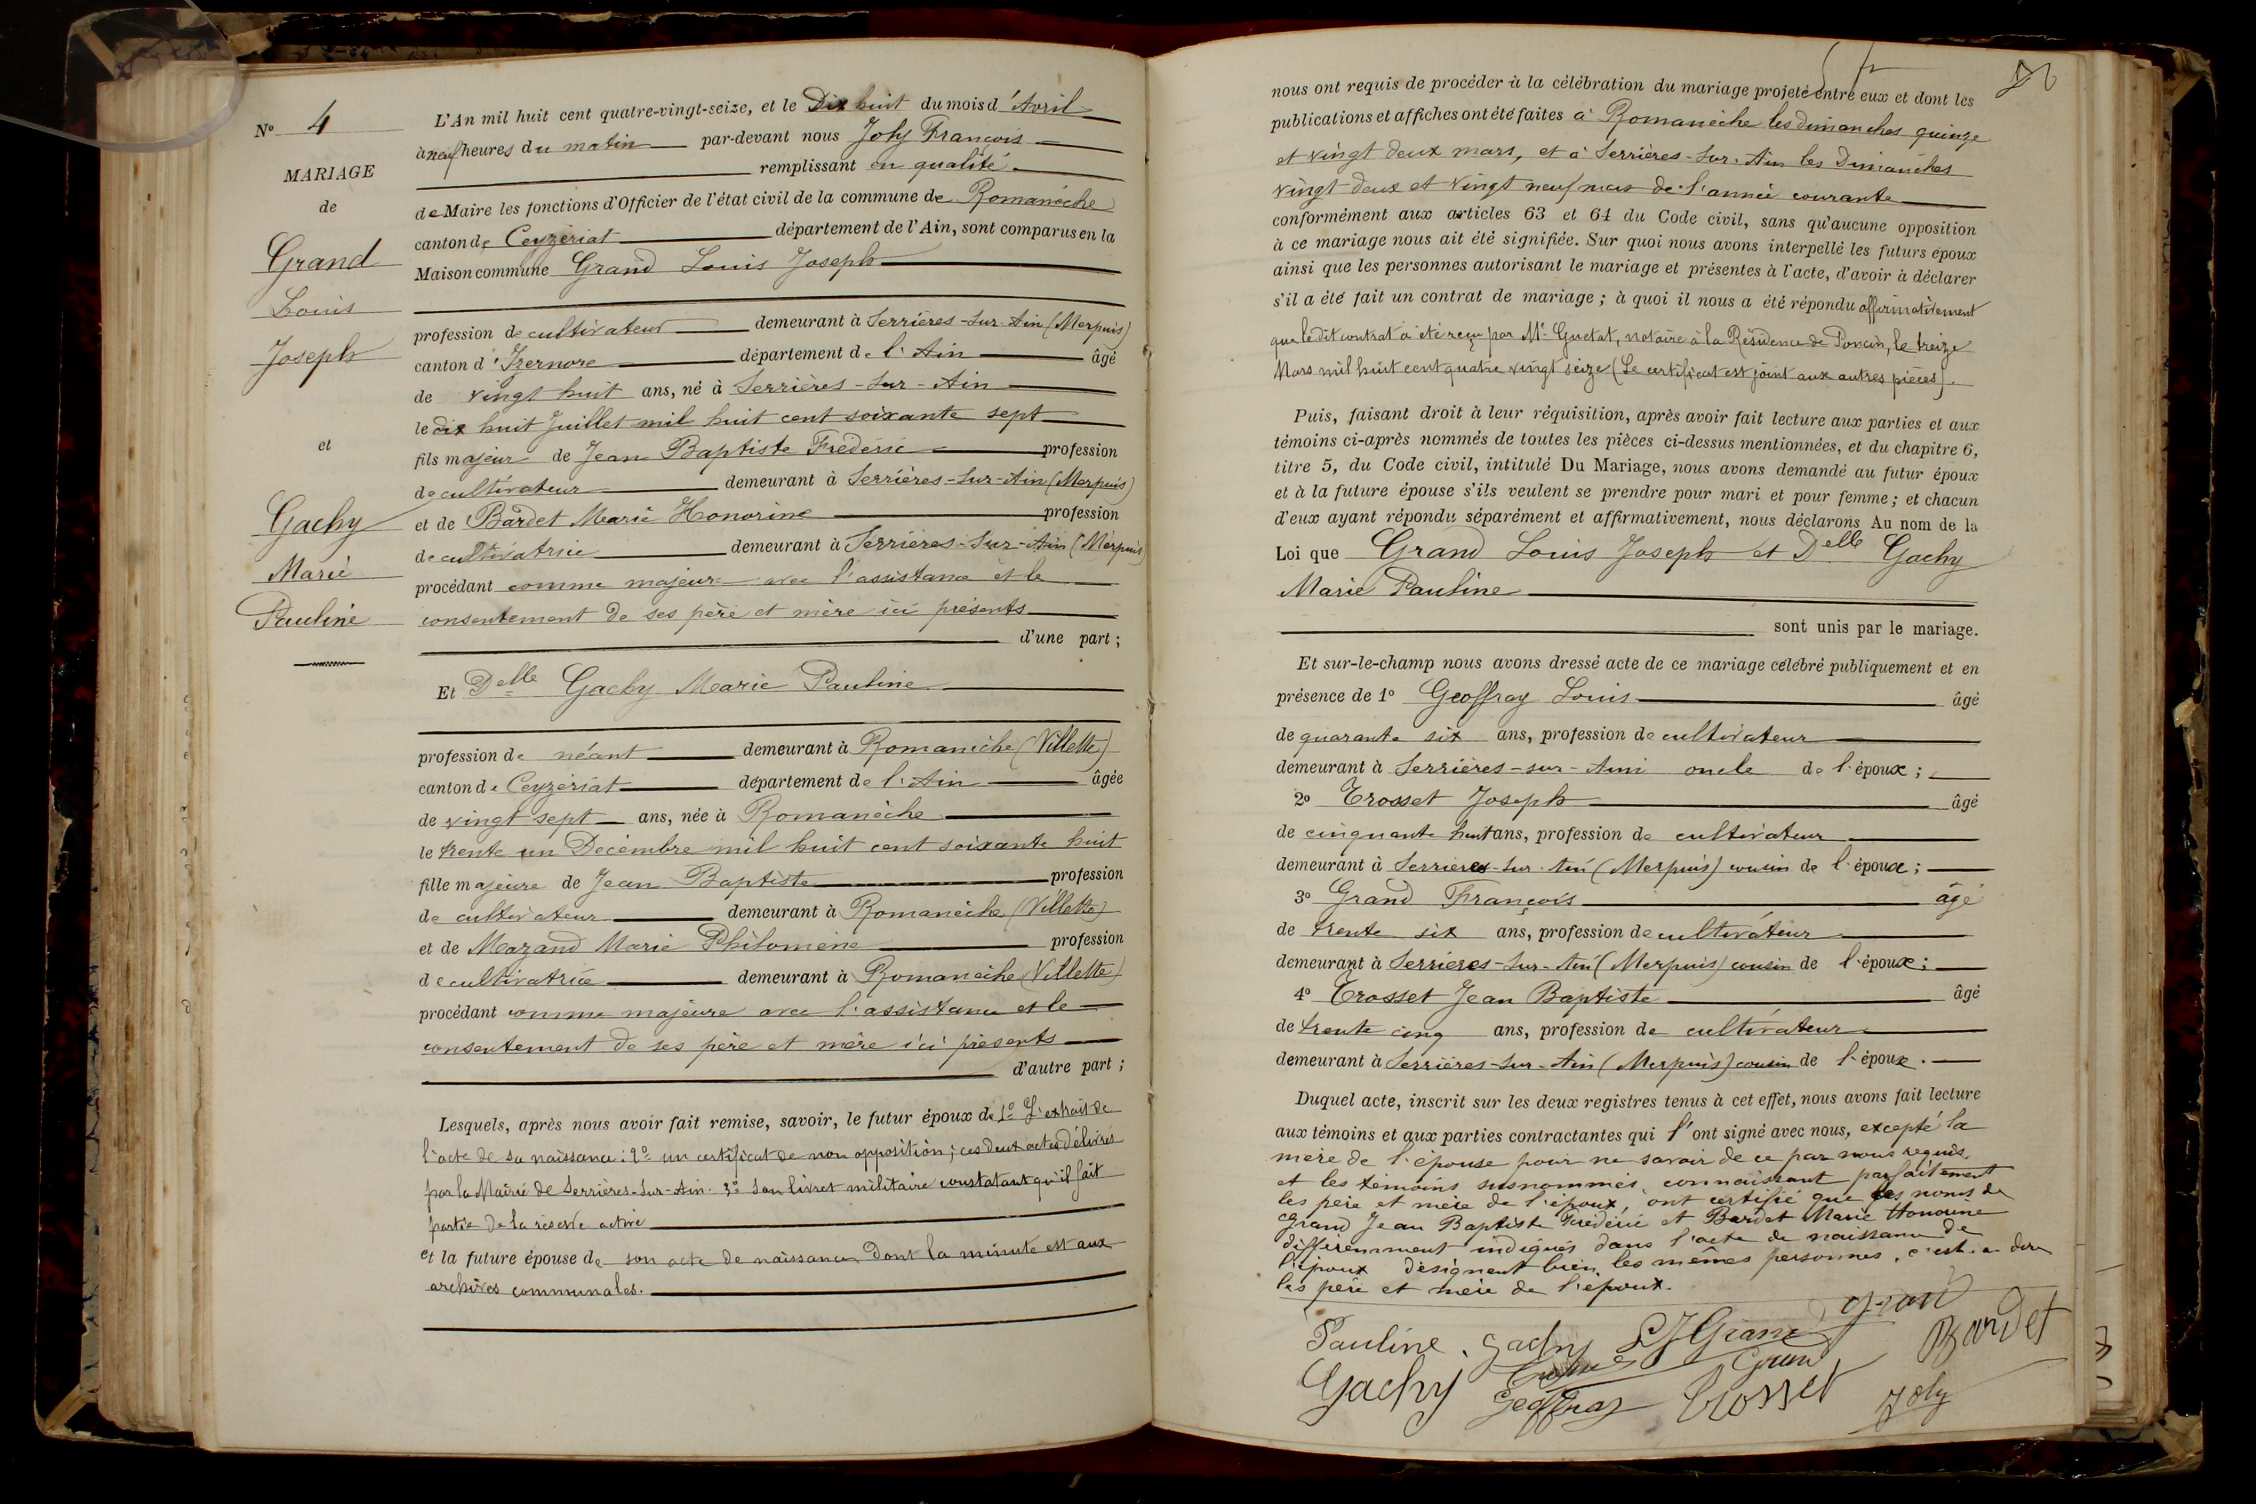 N° 4
MARIAGE
de
Grand
Louis
Joseph
et
Gachy
Marie
Pauline
L'An mil huit cent quatre-vingt-seize, et le Dix huit du mois d'Avril
à neuf heures du matin par-devant nous Joly François
remplissant en qualité
de Maire les fonctions d'Officier de l'état civil de la commune de Romanèche
canton de Ceyzériat département de l'Ain, sont comparus en la
Maison commune Grand Louis Joseph
profession de cultivateur demeurant à Serrières-sur-Ain (Merpuis)
canton d'Izernore département de l'Ain âgé
de vingt huit ans, né à Serrières-sur-Ain
le dix huit Juillet mil huit cent soixante sept
fils majeur de Jean Baptiste Frédéric profession
de cultivateur demeurant à Serrières-sur-Ain (Merpuis)
et de Bardet Marie Honorine profession
de cultivatrice demeurant à Serrières-sur-Ain (Merpuis)
procédant comme majeur avec l'assistance et le
consentement de ses père et mère ici présents
d'une part ;
Et Delle Gachy Marie Pauline
profession de néant demeurant à Romanèche (Villette)
canton de Ceyzériat département de l'Ain âgée
de vingt sept ans, née à Romanèche
le trente un Décembre mil huit cent soixante huit
fille majeure de Jean Baptiste profession
de cultivateur demeurant à Romanèche (Villette)
et de Mazand Marie Philomène profession
de cultivatrice demeurant à Romanèche (Villette)
procédant comme majeure avec l'assistance et le
consentement de ses père et mère ici présents
d'autre part ;
Lesquels, après nous avoir fait remise, savoir, le futur époux de 1° L'extrait de
l'acte de sa naissance : 2° un certificat de non opposition ; ces deux actes délivrés
par la Mairie de Serrières-sur-Ain. 3° Son livret militaire constatant qu'il fait
partie de la réserve active
et la future épouse de son acte de naissance dont la minute est aux
archives communales.
nous ont requis de procéder à la célébration du mariage projeté entre eux et dont les
publications et affiches ont été faites à Romanèche les dimanches quinze
et vingt deux mars, et à Serrières-sur-Ain les Dimanches
vingt deux et vingt neuf mars de l'année courante
conformément aux articles 63 et 64 du Code civil, sans qu'aucune opposition
à ce mariage nous ait été signifiée. Sur quoi nous avons interpellé les futurs époux
ainsi que les personnes autorisant le mariage et présentes à l'acte, d'avoir à déclarer
s'il a été fait un contrat de mariage ; à quoi il nous a été répondu affirmativement
que le dit contrat a été reçu par Me Guetat, notaire à la Résidence de Poncin, le treize
Mars mil huit cent quatre vingt seize (Le certificat est joint aux autres pièces).
Puis, faisant droit à leur réquisition, après avoir fait lecture aux parties et aux
témoins ci-après nommés de toutes les pièces ci-dessus mentionnées, et du chapitre 6,
titre 5, du Code civil, intitulé Du Mariage, nous avons demandé au futur époux
et à la future épouse s'ils veulent se prendre pour mari et pour femme ; et chacun
d'eux ayant répondu séparément et affirmativement, nous déclarons Au nom de la
Loi que Grand Louis Joseph et Delle Gachy
Marie Pauline
sont unis par le mariage.
Et sur-le-champ nous avons dressé acte de ce mariage célébré publiquement et en
présence de 1° Geoffray Louis âgé
de quarante six ans, profession de cultivateur
demeurant à Serrières-sur-Ain oncle de l'époux ;
2° Trosset Joseph âgé
de cinquante huit ans, profession de cultivateur
demeurant à Serrières-sur-Ain (Merpuis) cousin de l'époux ;
3° Grand François âgé
de trente six ans, profession de cultivateur
demeurant à Serrières-sur-Ain (Merpuis) cousin de l'époux ;
4° Trosset Jean Baptiste âgé
de trente cinq ans, profession de cultivateur
demeurant à Serrières-sur-Ain (Merpuis) cousin de l'époux.
Duquel acte, inscrit sur les deux registres tenus à cet effet, nous avons fait lecture
aux témoins et aux parties contractantes qui l'ont signé avec nous, excepté la
mère de l'épouse pour ne savoir de ce par nous requis.
et les témoins susnommés, connaissant parfaitement
les père et mère de l'époux, ont certifié que les noms de
Grand Jean Baptiste Frédéric et Bardet Marie Honorine
différemment indiqués dans l'acte de naissance de
l'époux désignent bien les mêmes personnes, c'est-à-dire
les père et mère de l'époux.
Pauline Gachy LJ Grand grand
Bardet
Gachy Trosset Grand
Geoffray Trosset Joly